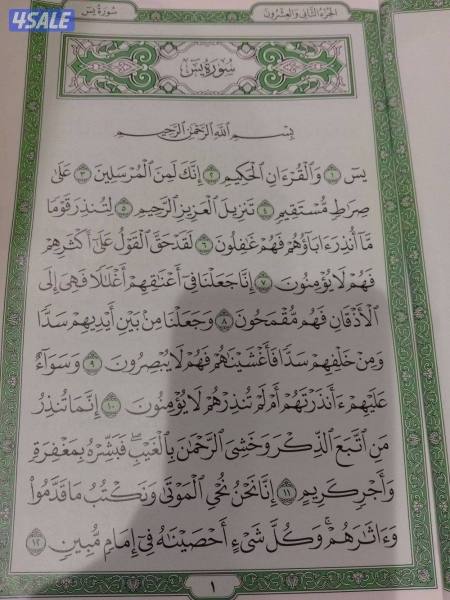 4SALE
الجزء الثاني والعشرون
سورة يس
سُورَةُ يسٓ
بِسْمِ اللَّهِ الرَّحْمَٰنِ الرَّحِيمِ
يسٓ ١ وَالْقُرْءَانِ الْحَكِيمِ ٢ إِنَّكَ لَمِنَ الْمُرْسَلِينَ ٣ عَلَىٰ
صِرَاطٍ مُّسْتَقِيمٍ ٤ تَنزِيلَ الْعَزِيزِ الرَّحِيمِ ٥ لِتُنذِرَ قَوْمًا
مَّآ أُنذِرَ ءَابَآؤُهُمْ فَهُمْ غَٰفِلُونَ ٦ لَقَدْ حَقَّ الْقَوْلُ عَلَىٰٓ أَكْثَرِهِمْ
فَهُمْ لَا يُؤْمِنُونَ ٧ إِنَّا جَعَلْنَا فِىٓ أَعْنَٰقِهِمْ أَغْلَٰلًا فَهِىَ إِلَى
الْأَذْقَانِ فَهُم مُّقْمَحُونَ ٨ وَجَعَلْنَا مِنۢ بَيْنِ أَيْدِيهِمْ سَدًّا
وَمِنْ خَلْفِهِمْ سَدًّا فَأَغْشَيْنَٰهُمْ فَهُمْ لَا يُبْصِرُونَ ٩ وَسَوَآءٌ
عَلَيْهِمْ ءَأَنذَرْتَهُمْ أَمْ لَمْ تُنذِرْهُمْ لَا يُؤْمِنُونَ ١٠ إِنَّمَا تُنذِرُ
مَنِ اتَّبَعَ الذِّكْرَ وَخَشِىَ الرَّحْمَٰنَ بِالْغَيْبِ ۖ فَبَشِّرْهُ بِمَغْفِرَةٍ
وَأَجْرٍ كَرِيمٍ ١١ إِنَّا نَحْنُ نُحْىِ الْمَوْتَىٰ وَنَكْتُبُ مَا قَدَّمُوا۟
وَءَاثَٰرَهُمْ ۚ وَكُلَّ شَىْءٍ أَحْصَيْنَٰهُ فِىٓ إِمَامٍ مُّبِينٍ ١٢
١